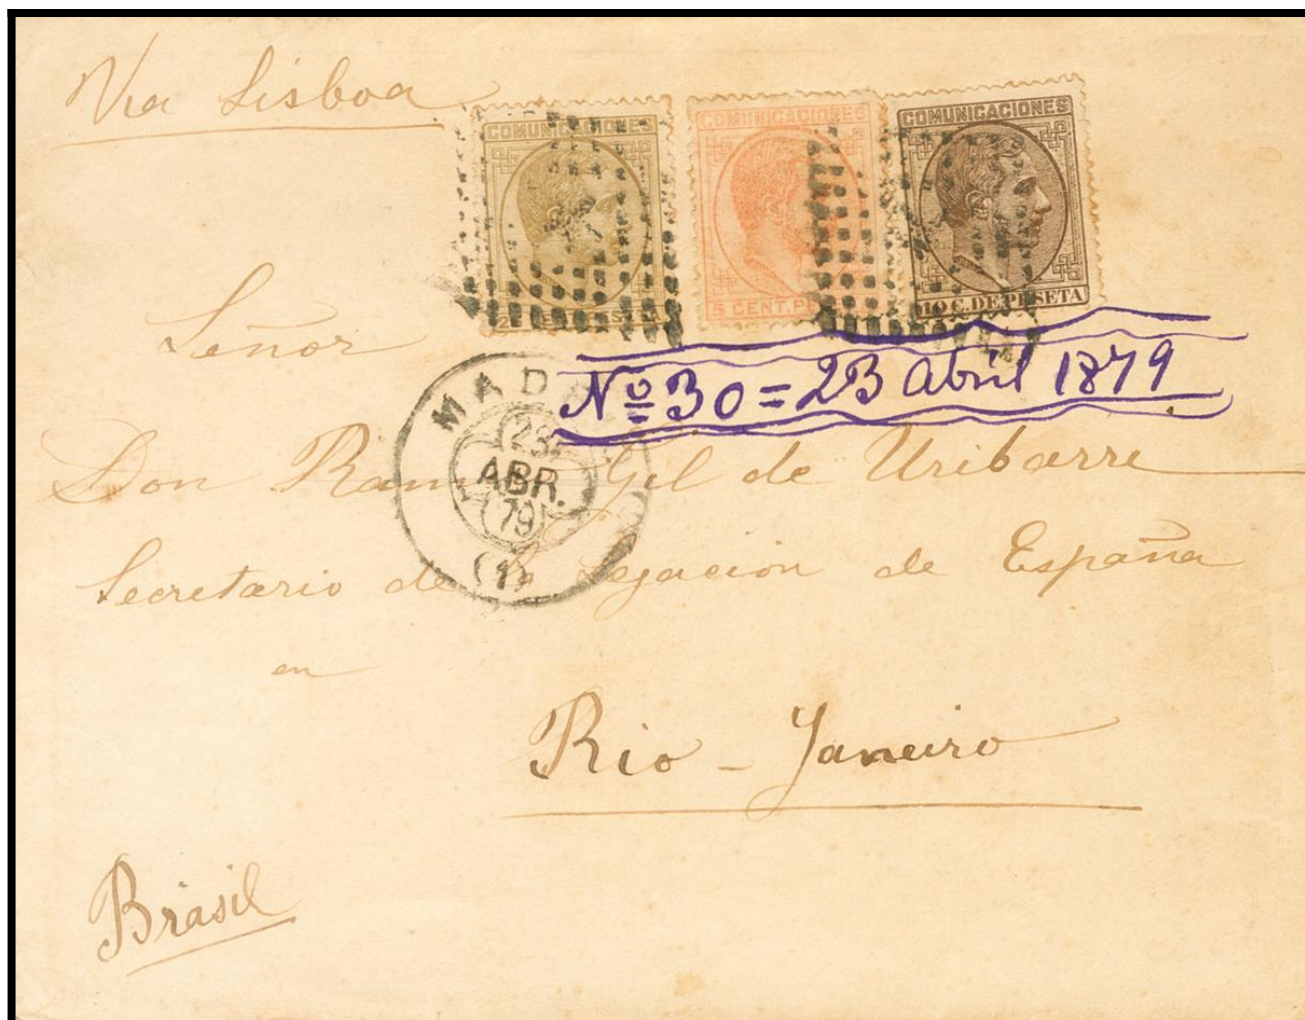 Via Lisboa
COMUNICACIONES
COMUNICACIONES
5 CENT. P
COMUNICACIONES
10 C. DE PESETA
Señor
Nº 30 = 23 Abril 1879
MAD
23
ABR.
79
(1)
Don Ram Gil de Uribarri
Secretario de la Legacion de España
en
Rio - Janeiro
Brasil